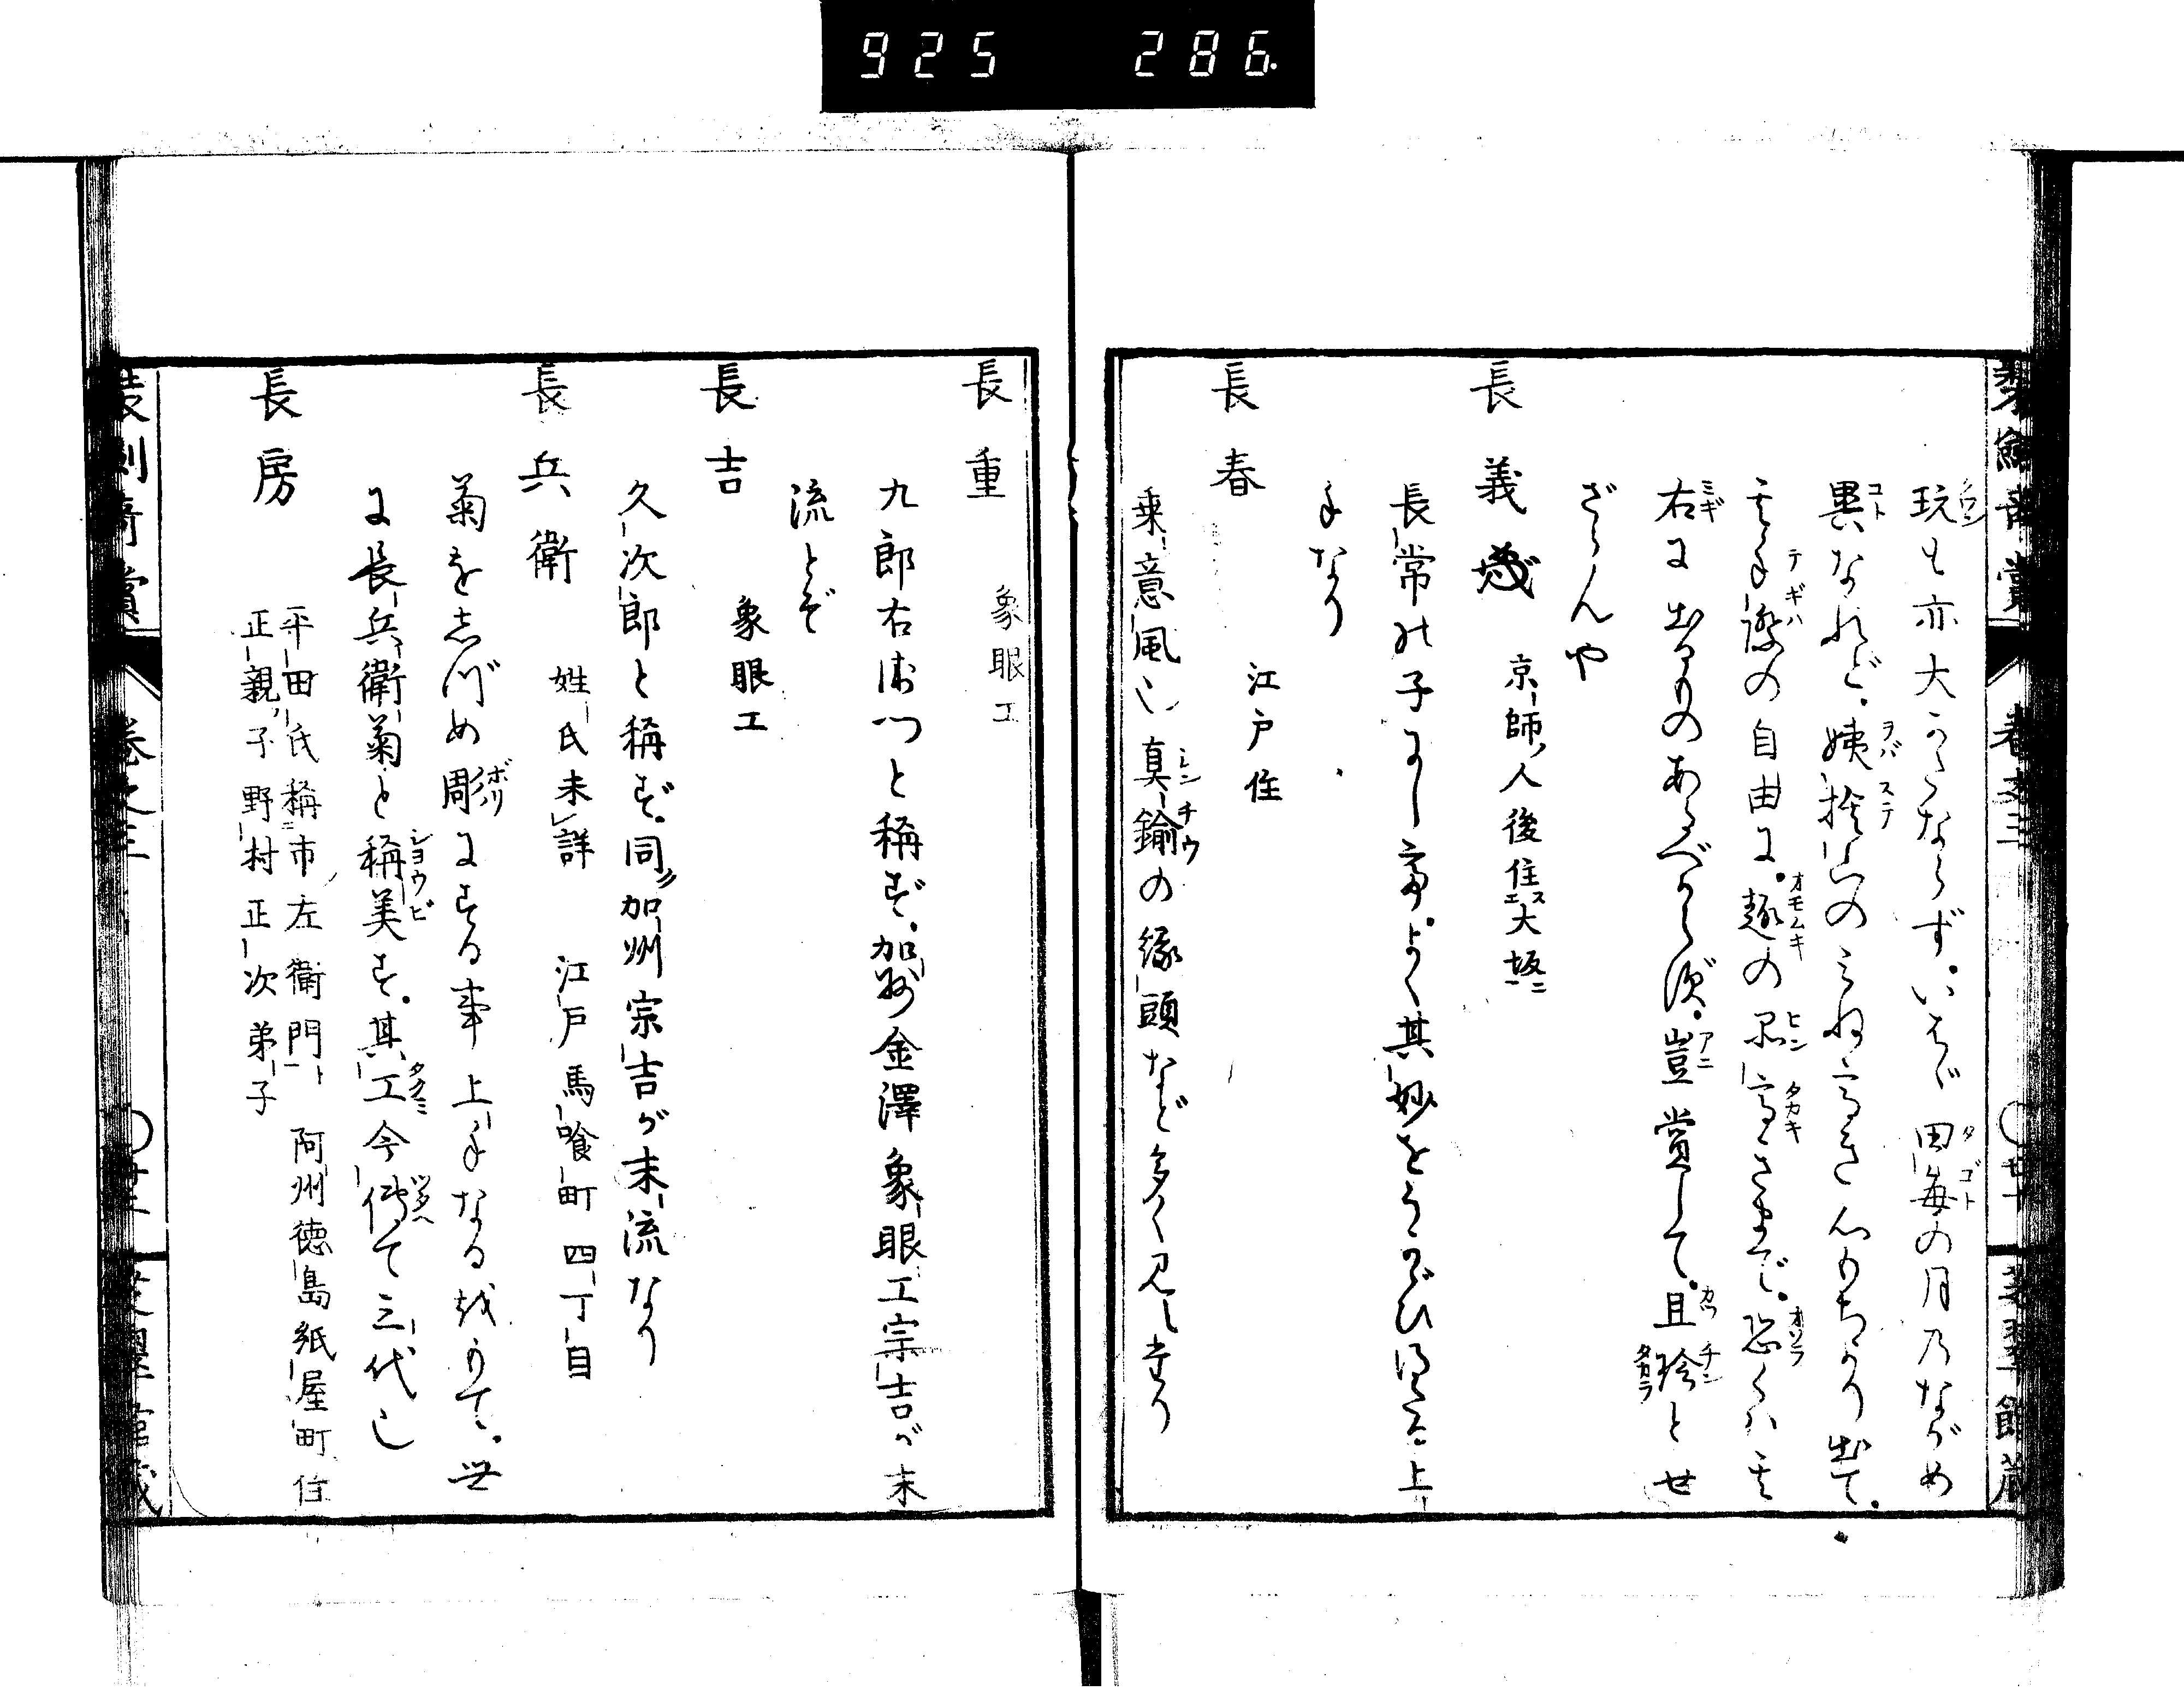 925 286
玩も亦大かたならずいはゞ田毎の月乃ながめ
異なれど姨捨山のみね高き心もちより出て
其手際の自由に趣の品高きさまで恐くハ其
右に出るものあるべからず豈賞して且珍とせ
ざらんや
長義 京師人後住大坂
長常の子にして斎よく其妙をうかゞひ得たる上
手なり
長春 江戸住
乗意風し真鍮の縁頭など多く見しなり
長重 象眼工
九郎右衛門と称ず加州金澤象眼工宗吉が末
流とぞ
長吉 象眼工
久次郎と稱ず同加州宗吉が末流なり
長兵衛 姓氏未詳 江戸馬喰町四丁目
菊をしづめ彫にする事上手なる故もて世
に長兵衛菊と稱美す其工今傳て三代し
長房 平田氏稱市左衛門 阿州徳島紙屋町住
正親子野村正次弟子
装劍奇賞 巻之三